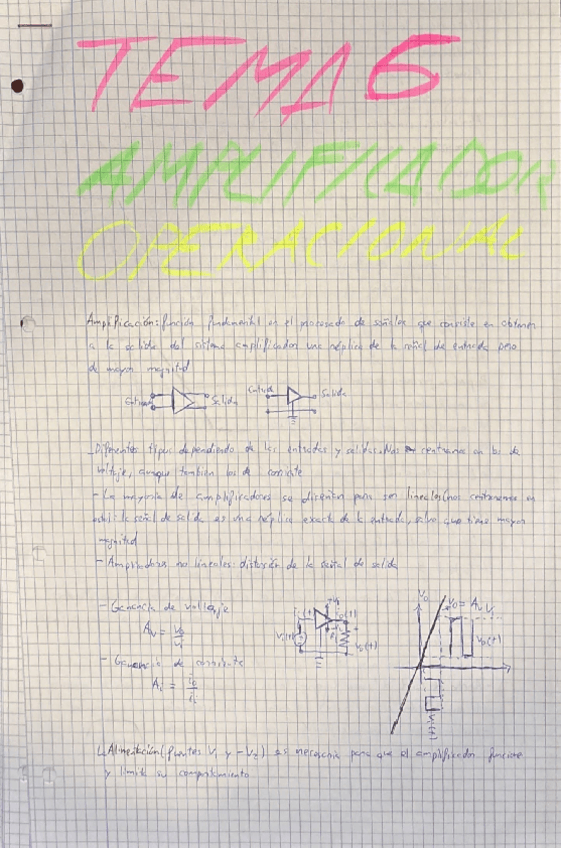 TEMA 6
AMPLIFICADOR
OPERACIONAL
Amplificación: función fundamental en el procesado de señales que consiste en obtener
a la salida del sistema amplificador una réplica de la señal de entrada pero
de mayor magnitud
Entrada Salida Entrada Salida
Diferentes tipos dependiendo de las entradas y salidas. Nos centramos en los de
voltaje, aunque también los de corriente
- La mayoría de amplificadores se diseñan para ser lineales (nos centraremos en
: la señal de salida es una réplica exacta de la entrada, salvo que tiene mayor
magnitud
- Amplificadores no lineales: distorsión de la señal de salida
- Ganancia de voltaje
Av = vo/vi
- Ganancia de corriente
Ai = io/ii
Vo
vo = Av vi
vo(t)
vi(t)
Alimentación (fuentes V1 y -V2) es necesaria para que el amplificador funcione
y limita su comportamiento